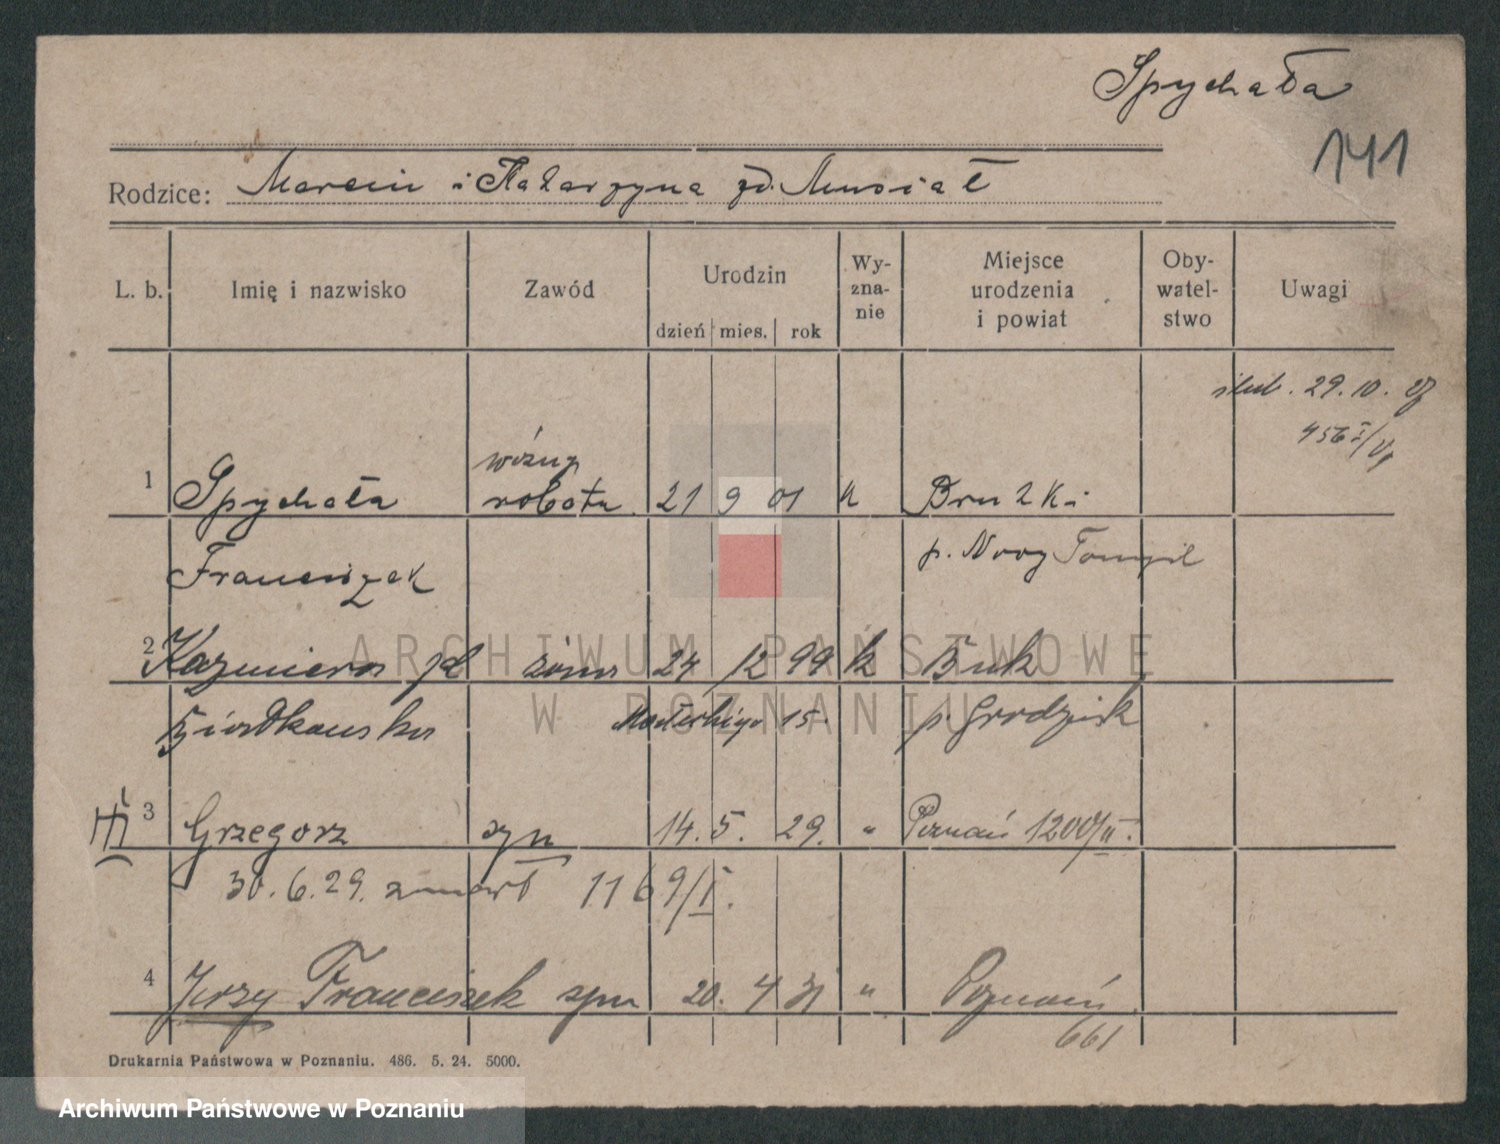 Spychała
141
Rodzice: Marcin i Katarzyna zd. Musiał
L. b.
Imię i nazwisko
Zawód
Urodzin
dzień mies. rok
Wy-
zna-
nie
Miejsce
urodzenia
i powiat
Oby-
watel-
stwo
Uwagi
ślub. 29.10.
456 I/
woźny
1 Spychała robotn. 21 9 01 k
Franciszek p. Nowy Tomyśl
2 Kazimiera zd. żona 24 12 99 k Buk
15. p. Grodzisk
3 Grzegorz syn 14. 5. 29. " Poznań 1200/II.
30.6.29. zmarł 1169/I.
4 Jerzy Franciszek syn 20. 4 31 " Poznań
661
Drukarnia Państwowa w Poznaniu. 486. 5. 24. 5000.
ARCHIWUM PAŃSTWOWE
W POZNANIU
Archiwum Państwowe w Poznaniu